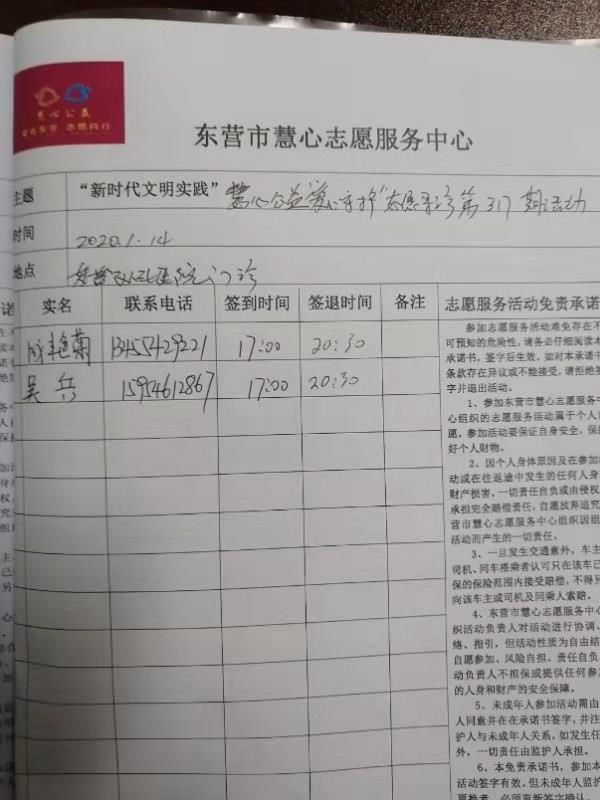 慧心公益
爱在东营 志愿同行
东营市慧心志愿服务中心
主题 “新时代文明实践” 慧心公益爱心守护“志愿导诊第317期活动
时间 2020.1.14
地点 医院门诊
实名 联系电话 签到时间 签退时间 备注
艳菊 13455429221 17:00 20:30
吴兵 15954612867 17:00 20:30
志愿服务活动免责承诺
参加志愿服务活动难免存在不
可预知的危险性，请务必仔细阅读本
承诺书，签字后生效。如对本承诺书
条款存在异议或不能接受，请拒绝签
字并退出活动。
1、参加东营市慧心志愿服务中
心组织的志愿服务活动属于个人自
愿，参加活动要保证自身安全，保护
好个人财物。
2、因个人身体原因及在参加活
动或在往返途中发生的任何人身
财产损害，一切责任自负或由侵权
承担完全赔偿责任，自愿放弃追究
营市慧心志愿服务中心组织因组
活动而产生的一切责任。
3、一旦发生交通意外，车主
司机、同车搭乘者认可只在该车已
保的保险范围内接受赔偿，不得另
向该车主或司机及同乘人索赔。
4、东营市慧心志愿服务中心
织活动负责人对活动进行协调、
络、指引，但活动性质为自由结
自愿参加、风险自担、责任自负
动负责人不担保或提供任何参加
的人身和财产的安全保障。
5、未成年人参加活动需由
人同意并在在承诺书签字，并注
护人与未成年人关系，如发生任
外，一切责任由监护人承担。
6、本免责承诺书，参加本
活动签字有效。但未成年人监护
更换者，必须重新签字确认。